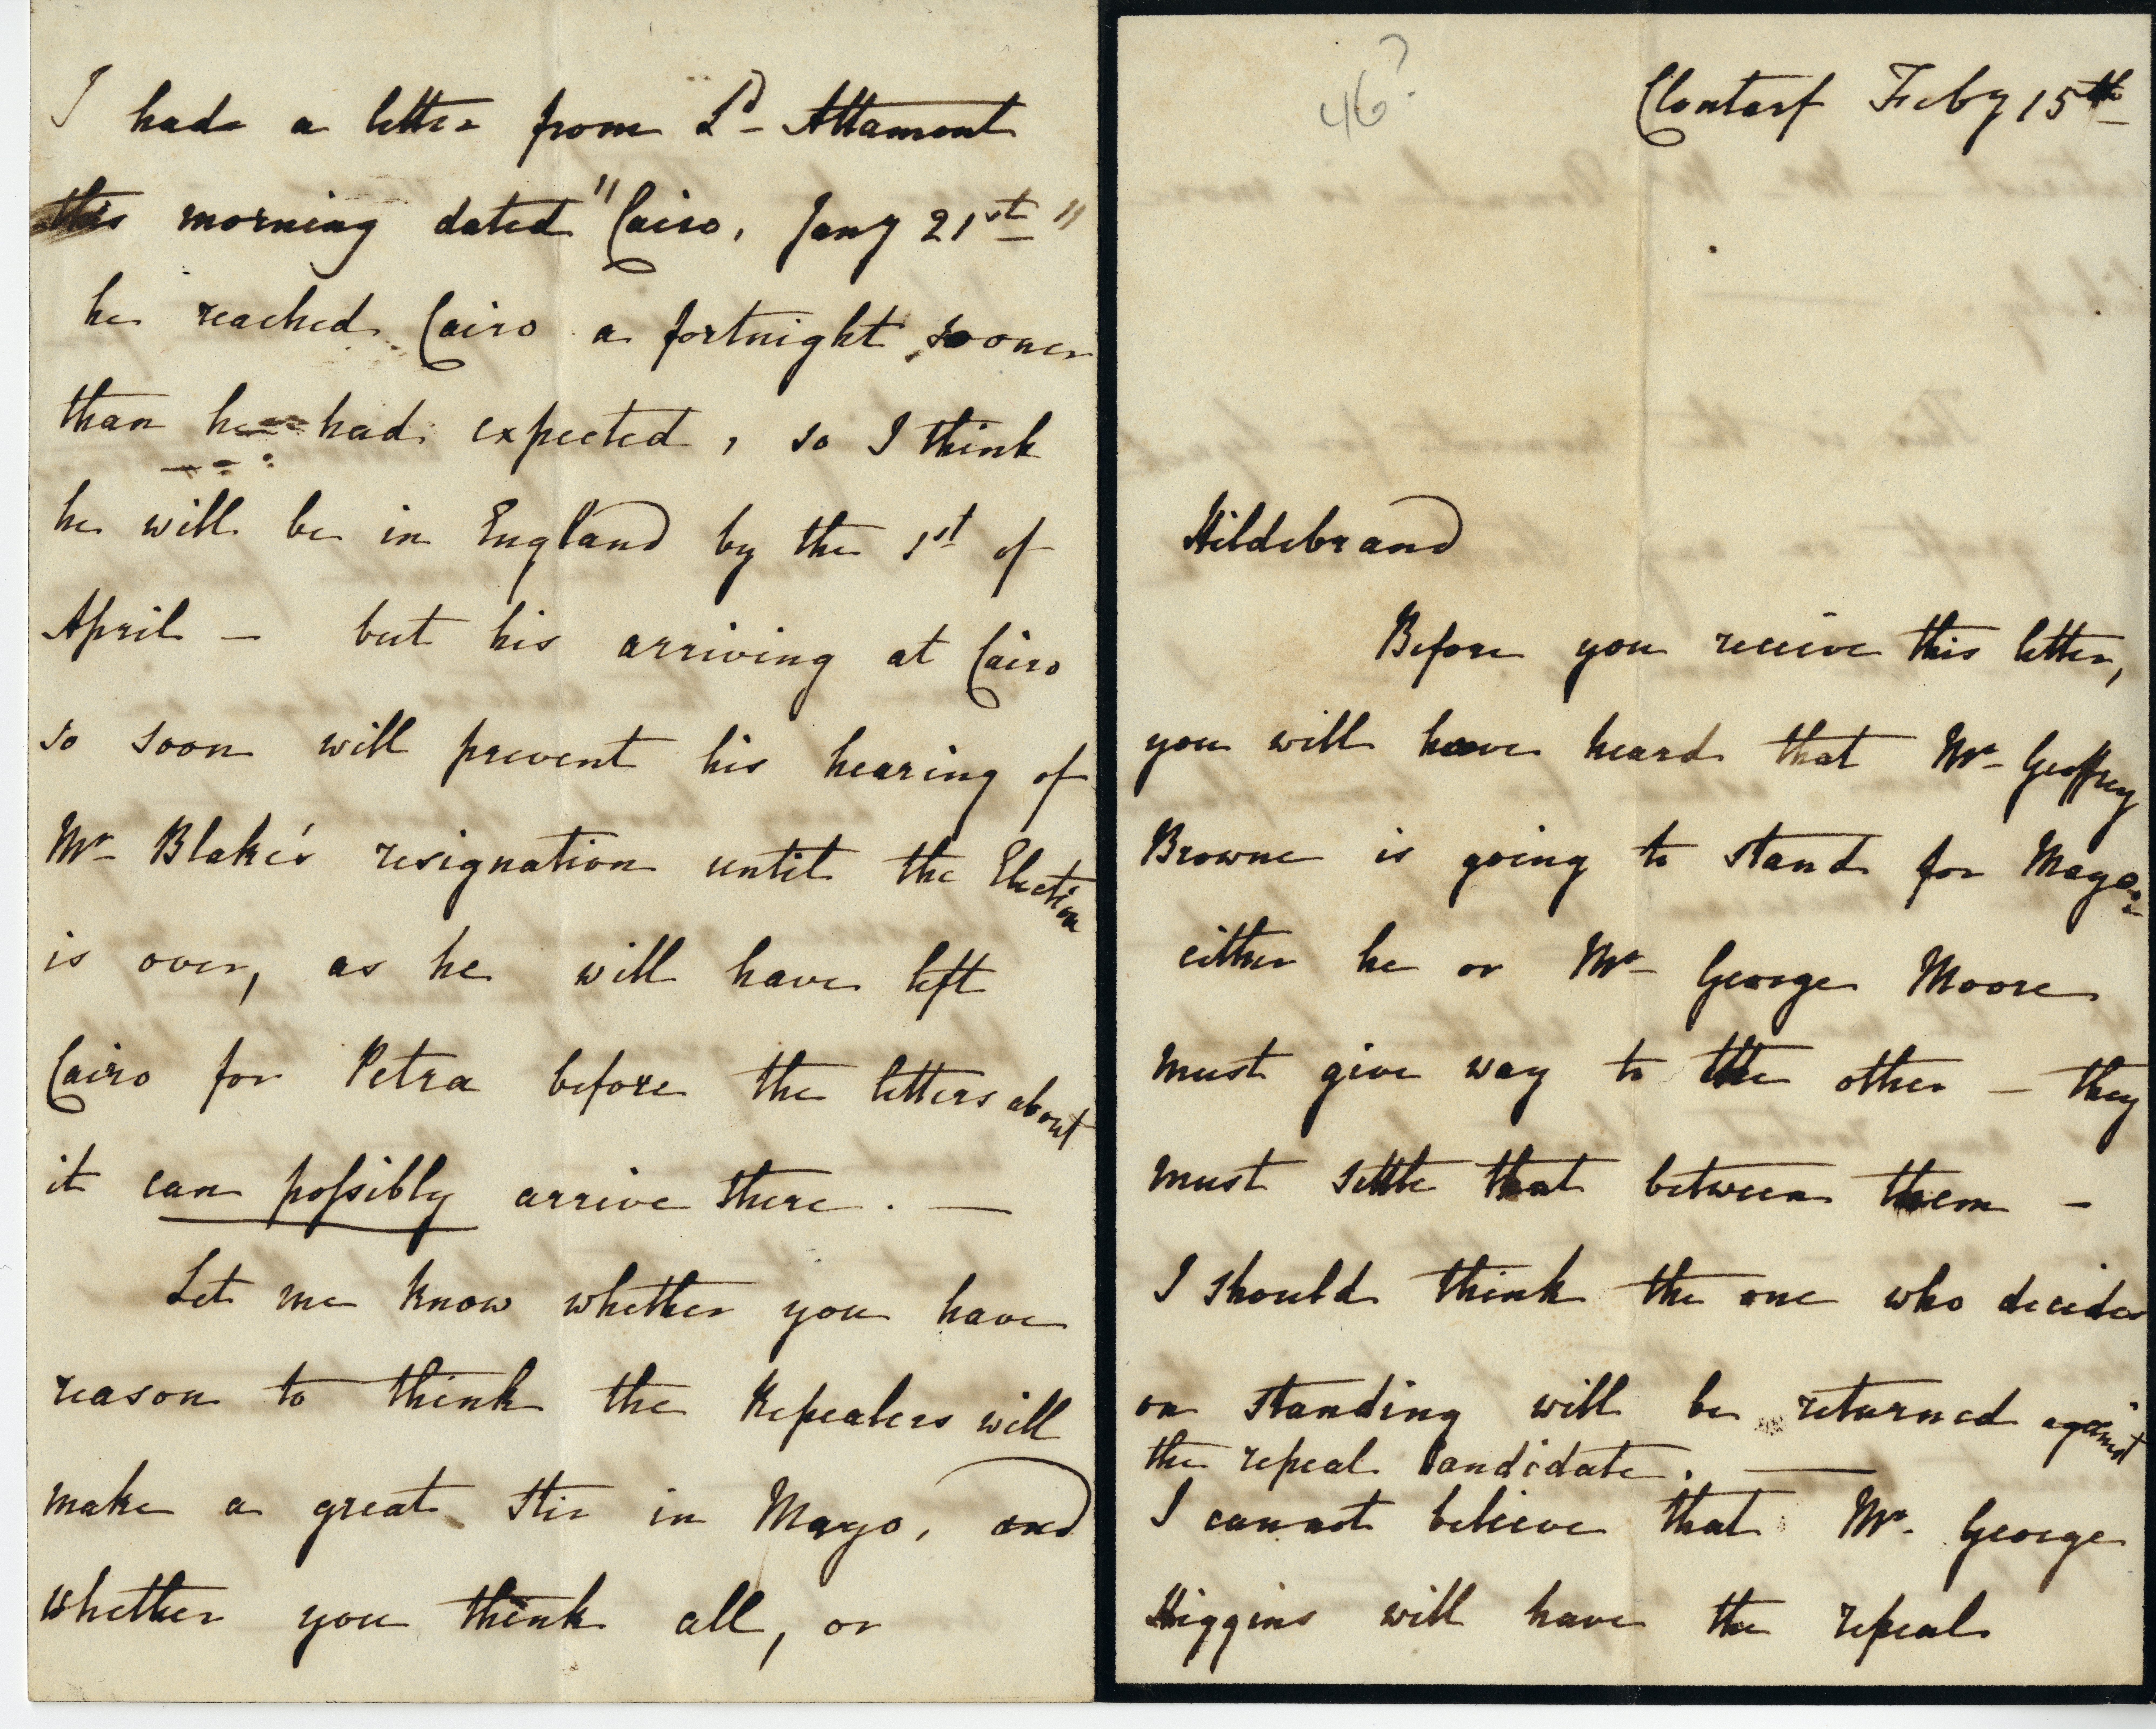 I had a letter from Ld Altamont
this morning dated "Cairo, Jany 21st"
he reached Cairo a fortnight sooner
than he had expected, so I think
he will be in England by the 1st of
April — but his arriving at Cairo
so soon will prevent his hearing of
Mr Blake's resignation until the Election
is over, as he will have left
Cairo for Petra before the letters about
it can possibly arrive there. —
Let me know whether you have
reason to think the Repealers will
make a great stir in Mayo, and
whether you think all, or
46?
Clontarf Feby 15th
Hildebrand
Before you receive this letter,
you will have heard that Mr Geoffrey
Browne is going to stand for Mayo:
either he or Mr George Moore
must give way to the other — they
must settle that between them —
I should think the one who decides
on standing will be returned against
the repeal Candidate. —
I cannot believe that Mr. George
Higgins will have the repeal